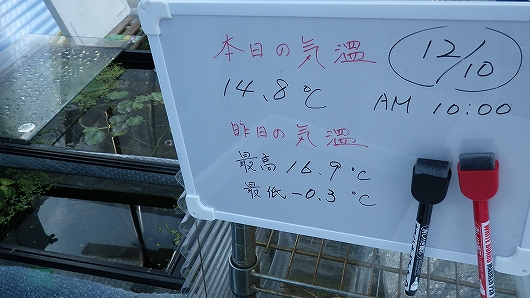 本日の気温
12/10
14.8℃
AM 10:00
昨日の気温
最高 16.9℃
最低 -0.3℃